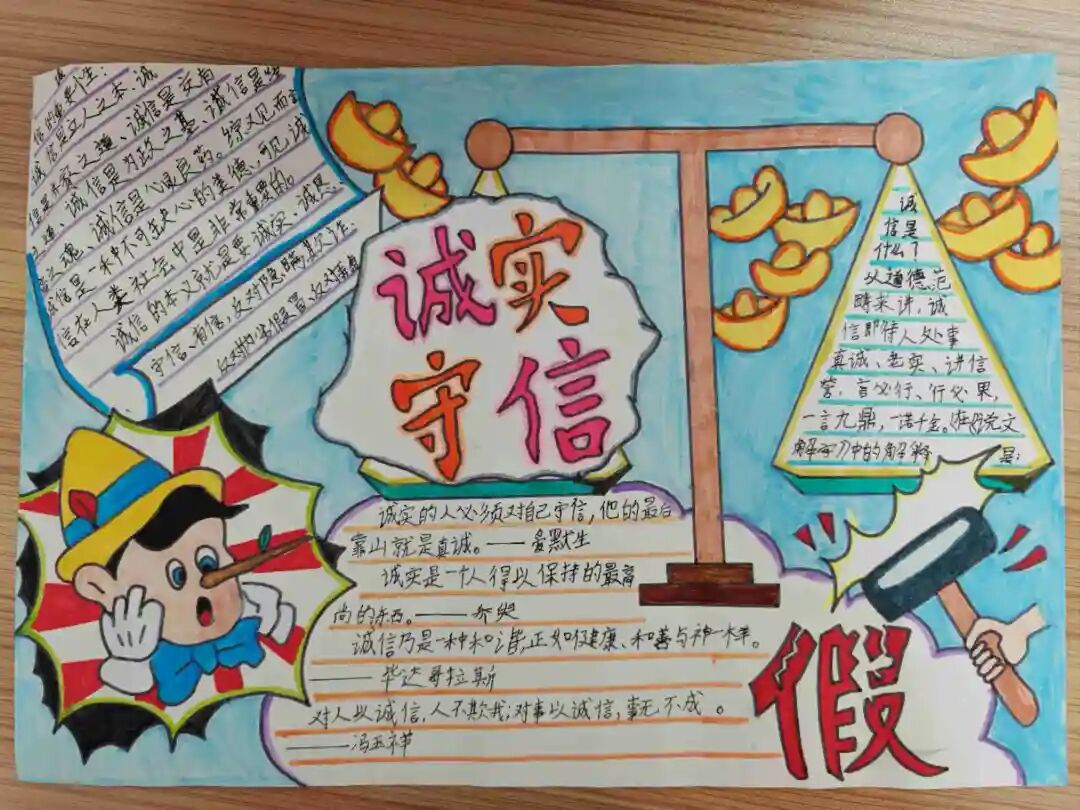 信的重要性：
诚信是立人之本、诚
信是齐家之道、诚信是交友
之道、诚信是为政之基、诚信是经
商之魂、诚信是心灵良药。综以见而言
诚信是一种不可缺心的美德，可见诚
信在人类社会中是非常重要的。
诚信的本义就是要诚实、诚恳、
守信、有信，反对隐瞒、欺诈、
反对伪劣假冒、反对弄虚
诚实
守信
诚
信是
什么？
从道德范
畴来讲，诚
信即待人处事
真诚、老实、讲信
誉，言必行、行必果，
一言九鼎，一诺千金。在《说文
解字》中的解释是：
诚实的人必须对自己守信，他的最后
靠山就是真诚。——爱默生
诚实是一个人得以保持的最高
尚的东西。——乔叟
诚信乃是一种和谐，正如健康、和善与神一样。
——毕达哥拉斯
对人以诚信，人不欺我；对事以诚信，事无不成。
——冯玉祥
假